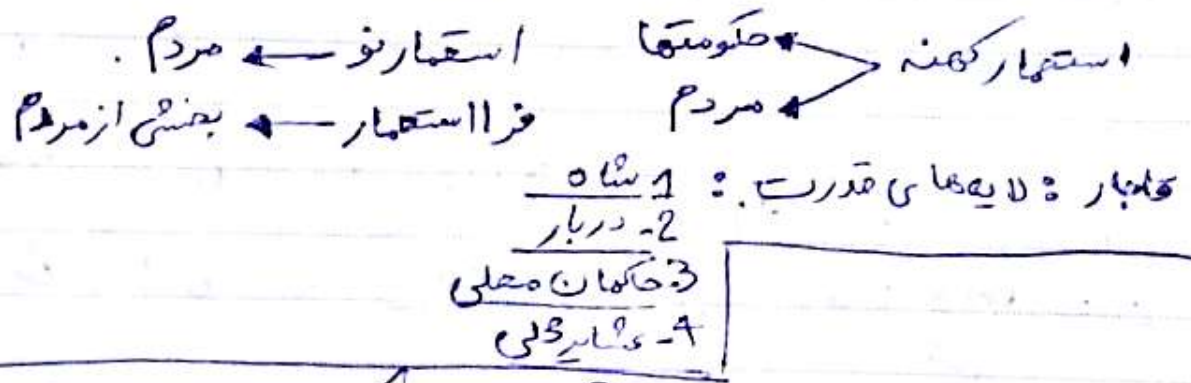 استعمار کهنه حکومتها استعمار نو ← مردم .
مردم فرا استعمار ← بخشی از مردم
قاجار : لایه های قدرت : 1 شاه
2- دربار
3. حاکمان محلی
4- عشایر